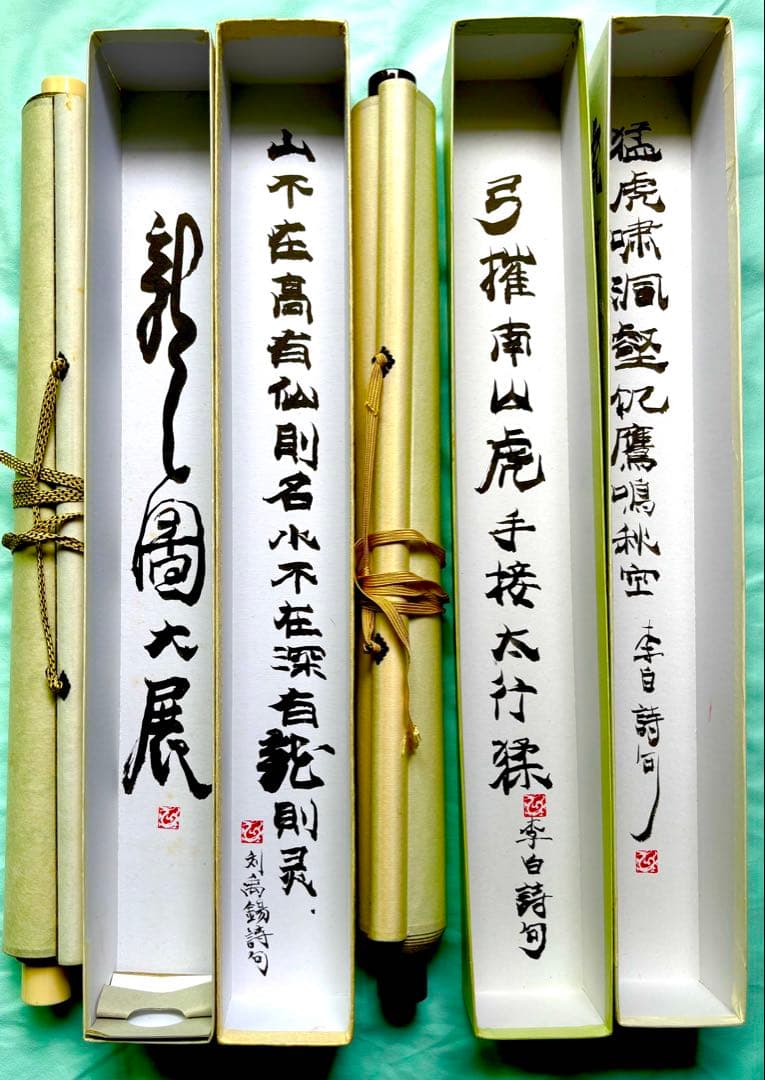 猛虎嘯洞壑飢鷹鳴秋空
李白詩句
弓摧南山虎手接太行猱
李白詩句
山不在高有仙則名水不在深有龍則灵.
刘禹錫詩句
龍圖大展